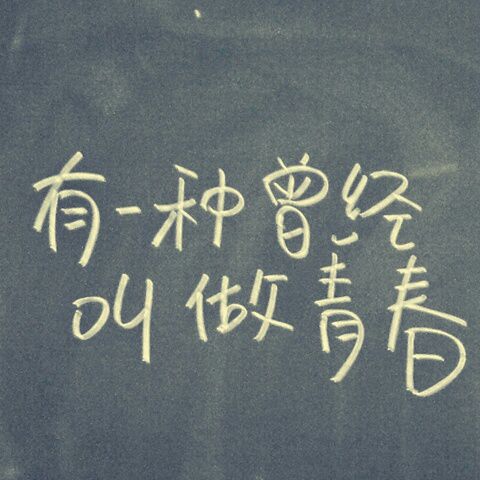 有一种曾经
叫做青春